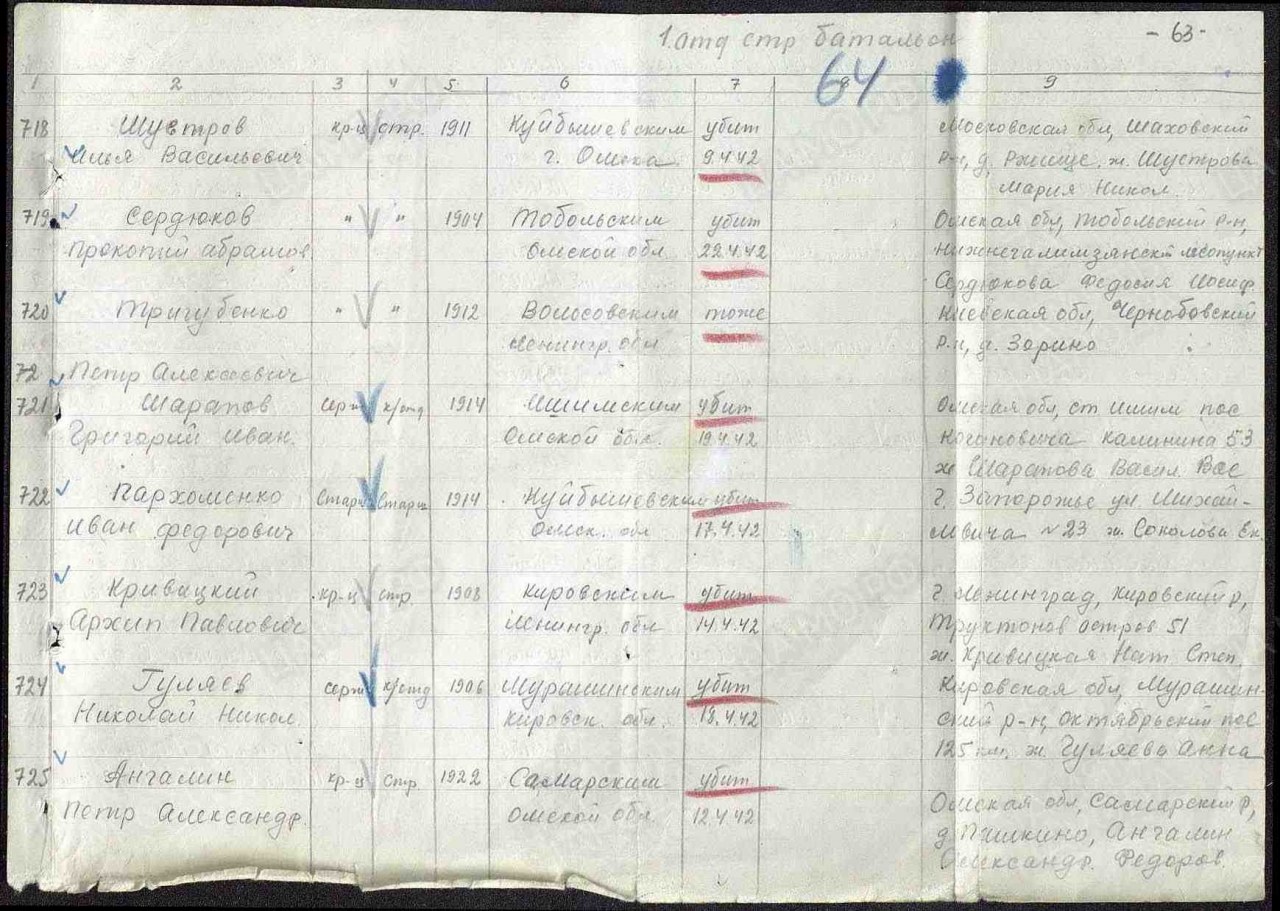 1 отд стр батальон - 63 -
64
1 2 3 4 5 6 7 8 9
718 Шустров кр-ц стр. 1911 Куйбышевским убит Московская обл, Шаховский
Илья Васильевич г. Омска 9.4.42 р-н, д. Ржище. ж. Шустрова
Мария Никол.
719 Сердюков " " 1904 Тобольским убит Омская обл, Тобольский р-н,
Прокопий Абрамов. Омской обл 22.4.42
Сердюкова Федосия Иосиф
720 Тригубенко " " 1912 Волосовским тоже Киевская обл, Чернобовский
Ленингр. обл р-н, д. Зорино
72 Петр Алексеевич
721 Шарапов Серж к/отд 1914 Ишимским убит Омская обл, ст Ишим пос
Григорий Иван. Омской обл. 19.4.42 Кагановича Калинина 53
ж Шарапова Васил. Вас
722 Пархоменко Старш Старш 1914 Куйбышевским убит г. Запорожье ул Михай-
Иван Федорович Омск. обл 17.4.42 ловича №23 ж. Соколова Ек.
723 Кривицкий кр-ц стр. 1908 Кировским убит г. Ленинград, Кировский р,
Архип Павлович Ленингр. обл 14.4.42 Труктонов остров 51
ж. Кривицкая Нат Степ.
724 Гуляев серж к/отд 1906 Мурашинским убит Кировская обл, Мурашин-
Николай Никол. Кировск. обл. 18.4.42 ский р-н, Октябрьский пос
125 км. ж. Гуляева Анна
725 Ангалин кр-ц стр 1922 Самарским убит
Петр Александр. Омской обл. 12.4.42 Омская обл, Самарский р,
д. Пяшкино, Ангалин
Александр. Федоров.